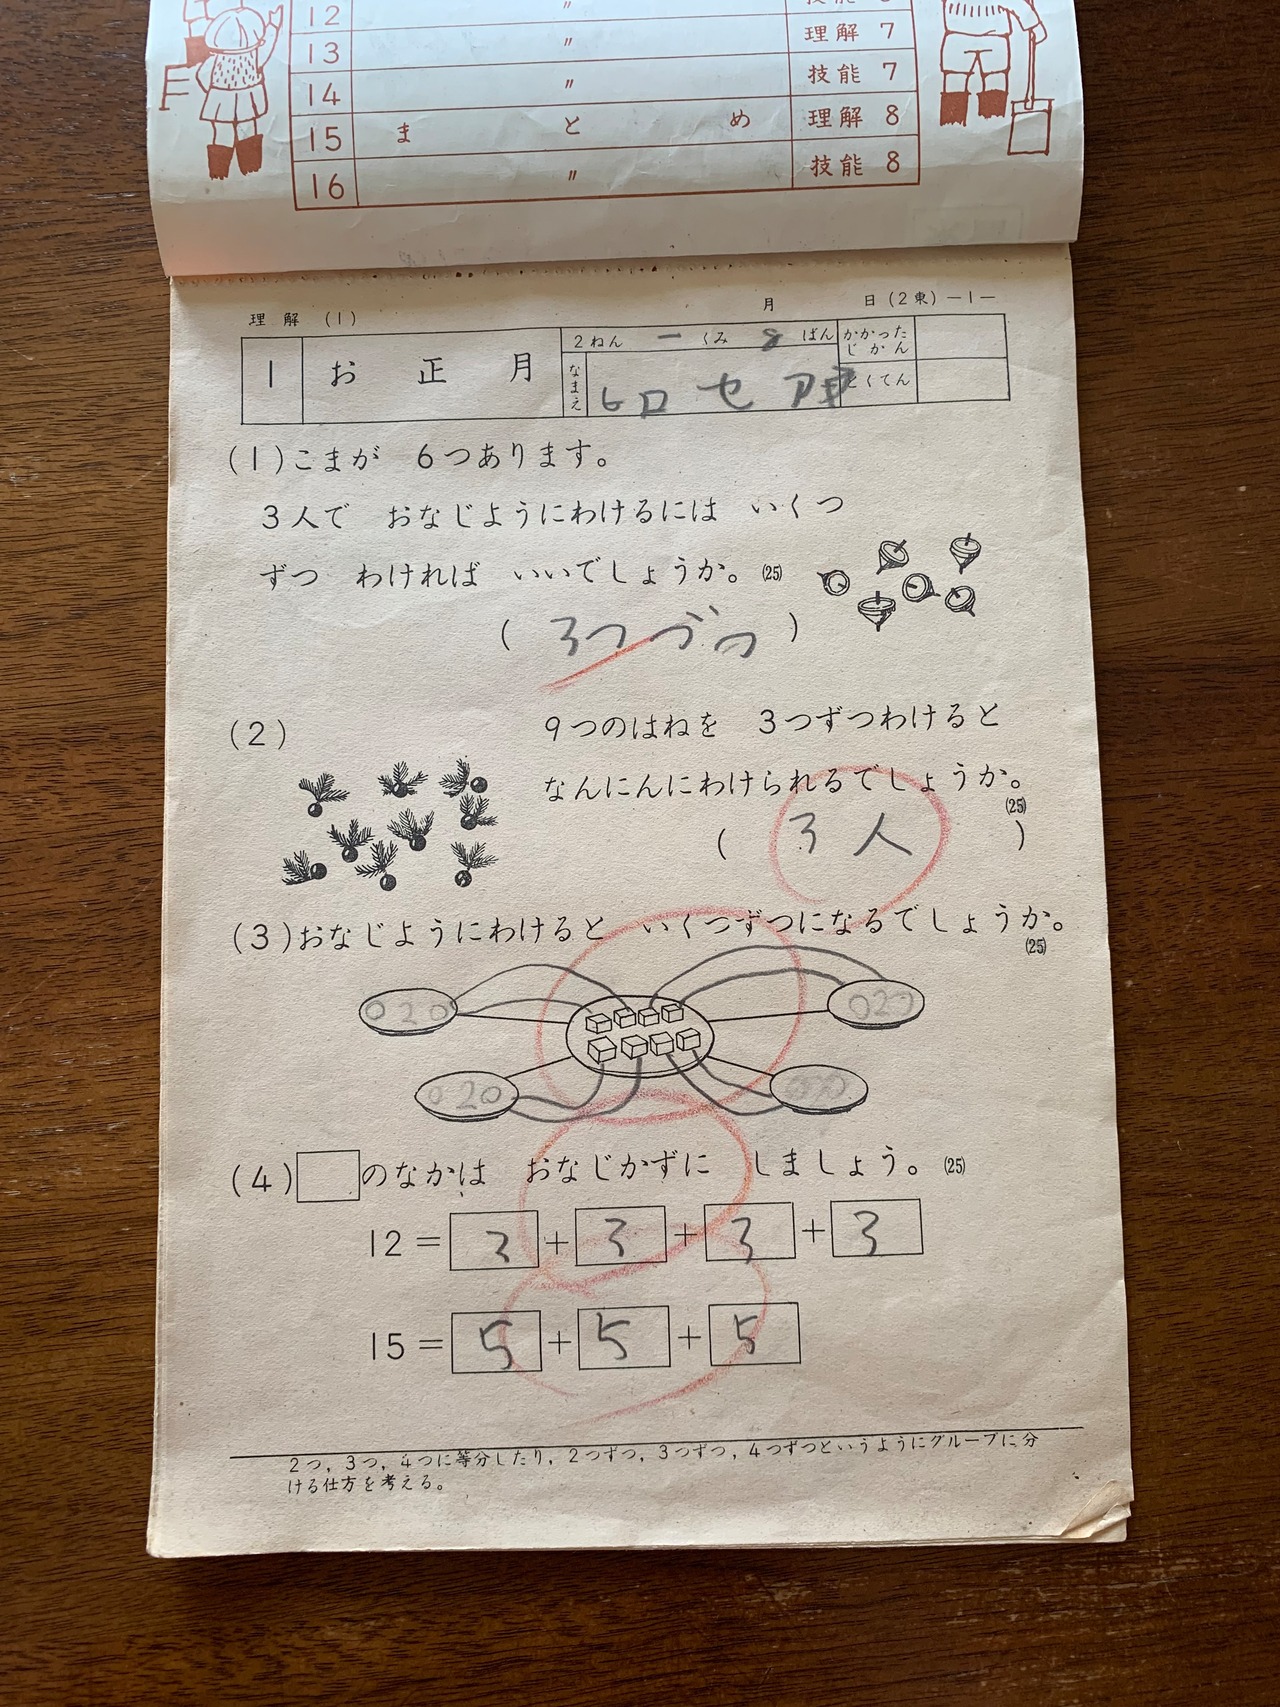 12 〃
13 〃 理解 7
14 〃 技能 7
15 まとめ 理解 8
16 〃 技能 8
理解 (1) 月 日 (2東) —1—
1 お正月 2ねん 一 くみ 8 ばん かかったじかん
なまえ とくてん
(1) こまが 6つあります。
3人で おなじようにわけるには いくつ
ずつ わければ いいでしょうか。(25)
( 3つづつ )
(2) 9つのはねを 3つずつわけると
なんにんにわけられるでしょうか。
(25)
( 3人 )
(3) おなじようにわけると いくつずつになるでしょうか。
(25)
020 020
020
(4) □のなかは おなじかずに しましょう。(25)
12 = 3 + 3 + 3 + 3
15 = 5 + 5 + 5
2つ, 3つ, 4つに等分したり, 2つずつ, 3つずつ, 4つずつというようにグループに分
ける仕方を考える。